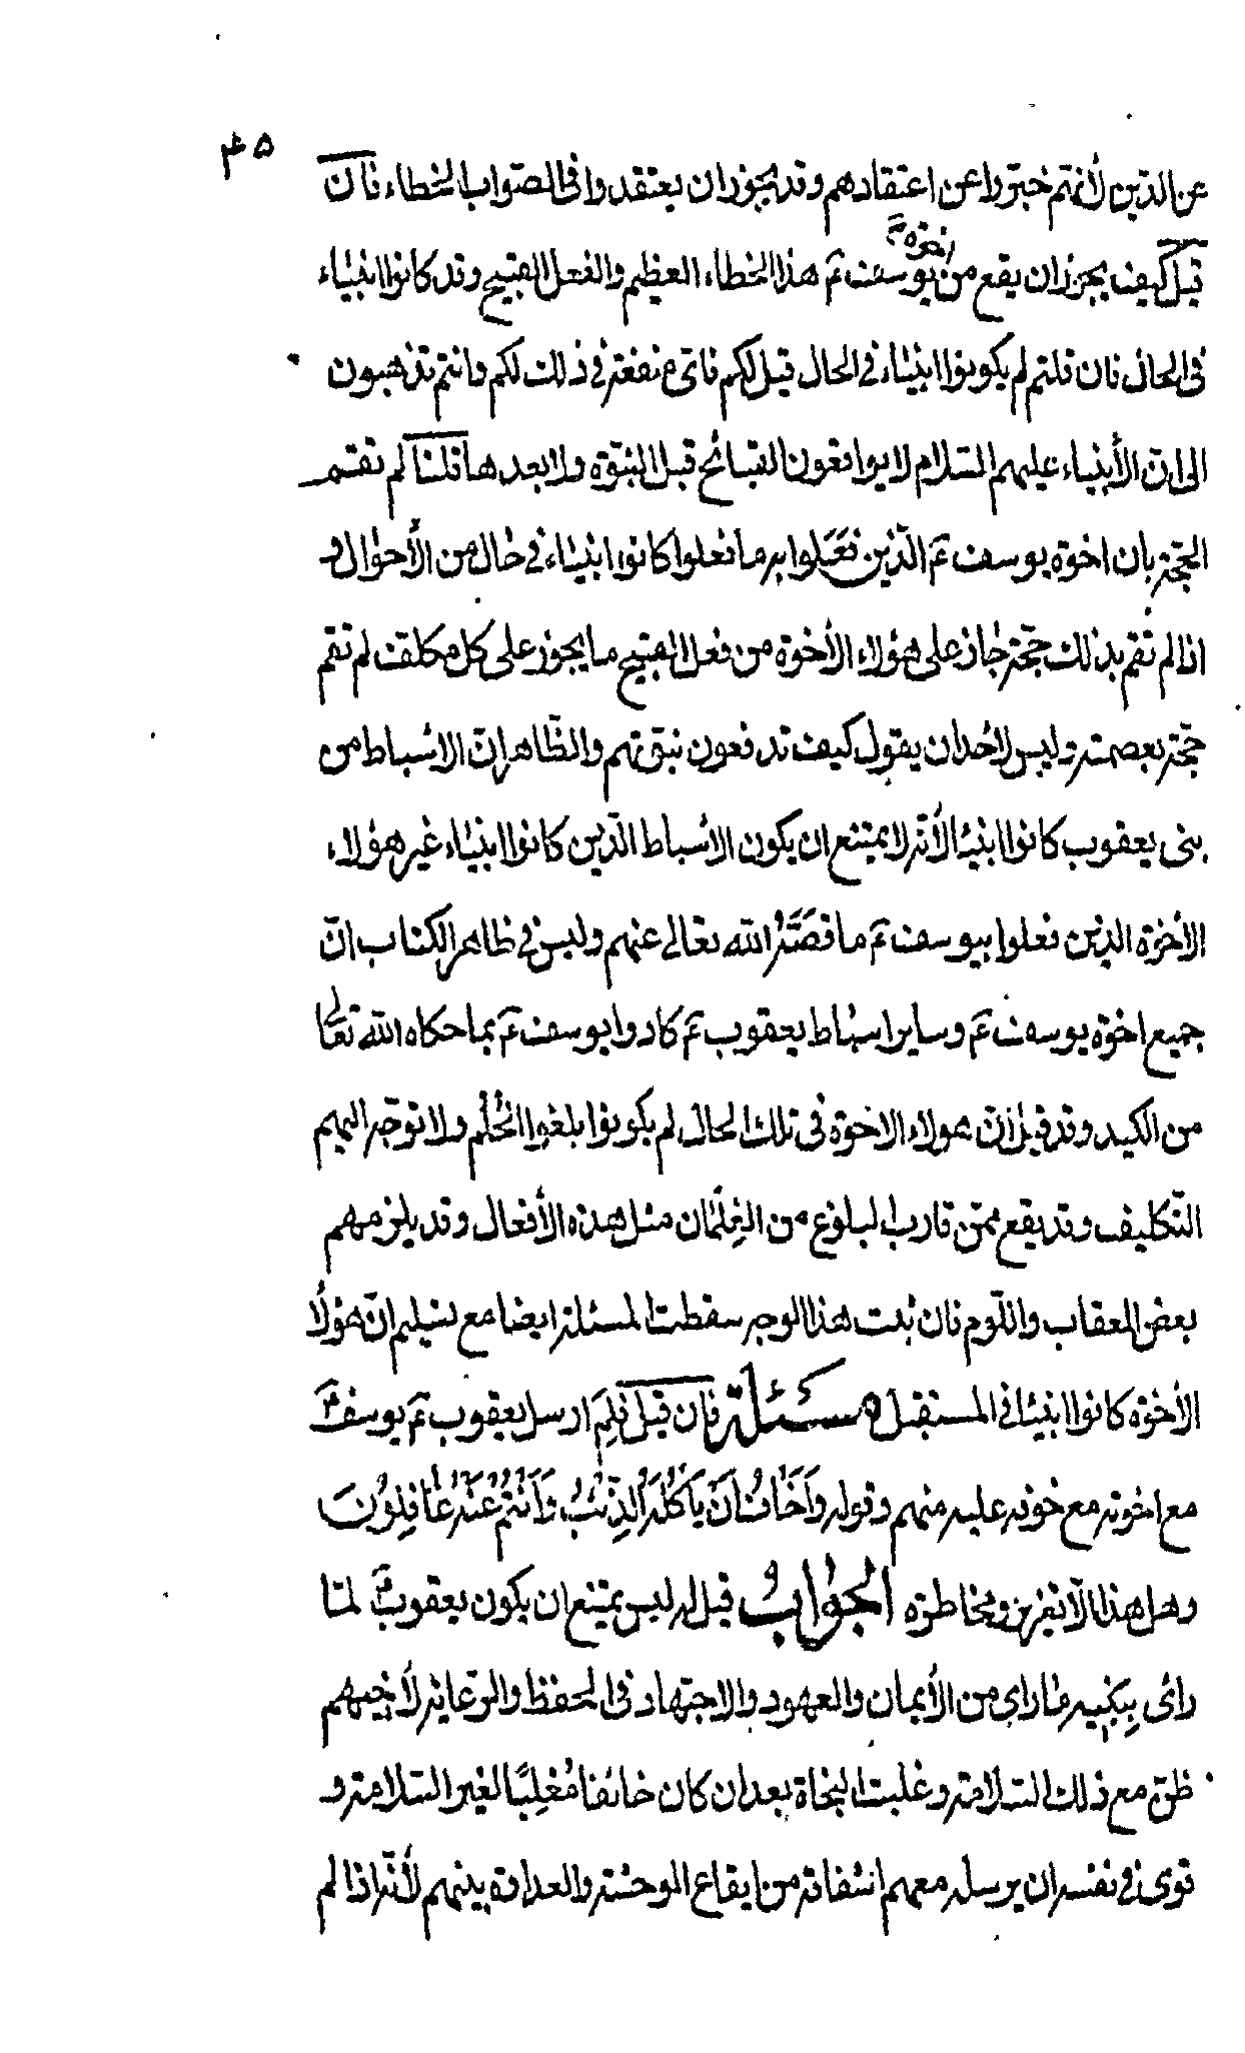 ۴۵
عن الدّين لأنّهم خبّروا عن اعتقادهم وقد يجوز ان يعتقدوا فى الصّواب الخطاء فان
قيل كيف يجوز ان يقع من اخوة يوسف عم هذا الخطاء العظيم والفعل القبيح وقد كانوا انبياء
فى الحال فان قلتم لم يكونوا انبياء فى الحال قيل لكم فاىّ منفعة فى ذلك لكم وانتم تذهبون
الى انّ الأنبياء عليهم السّلام لا يواقعون القبائح قبل النبوّة ولا بعدها قلنا لم تقم
الحجّة بان اخوة يوسف عم الّذين فعلوا به ما فعلوا كانوا انبياء فى حال من الأحوال و
اذا لم تقم بذلك حجّة جاز على هؤلاء الأخوة من فعل القبيح ما يجوز على كل مكلّف لم تقم
حجّة بعصمته وليس لأحد ان يقول كيف تدفعون نبوّتهم والظّاهر انّ الاسباط من
بنى يعقوب كانوا انبياء لأنّه لا يمتنع ان يكون الاسباط الّذين كانوا انبياء غير هؤلاء
الأخوة الذين فعلوا بيوسف عم ما قصّه الله تعالى عنهم وليس فى ظاهر الكتاب انّ
جميع اخوة يوسف عم وساير اسباط يعقوب عم كادوا يوسف عم بما حكاه الله تعالى
من الكيد وقد قيل انّ هولاء الاخوة فى تلك الحال لم يكونوا بلغوا الحُلُم ولا توجّه اليهم
التّكليف وقد يقع ممّن قارب البلوغ من الغِلْمان مثل هذه الأفعال وقد يلزمهم
بعض العقاب واللّوم فان ثبت هذا الوجه سقطت المسئلة ايضا مع تسليم انّ هؤلاء
الأخوة كانوا انبياء فى المستقبل مسئلة فان قيل فلِمَ ارسل يعقوب عم يوسف عم
مع اخوته مع خوفه عليه منهم وقوله وَاَخَافُ اَنْ يَأْكُلَهُ الذِّئْبُ وَاَنْتُمْ عَنْهُ غَافِلُونَ
وهل هذا الّا تغرير ومخاطرة الجوابُ قيل له ليس يمتنع ان يكون يعقوب عم لمّا
راى بِبَنِيه ما راى من الأيمان والعهود والاجتهاد فى الحفظ والرّعاية لأخيهم
ظنّ مع ذلك السّلامة وغلبت النجاة بعد ان كان خائفا مُغلِبًا لغير السّلامة و
قوى فى نفسه ان يرسله معهم اشفاقه من ايقاع الوحشة والعداوة بينهم لأنّه اذا لم